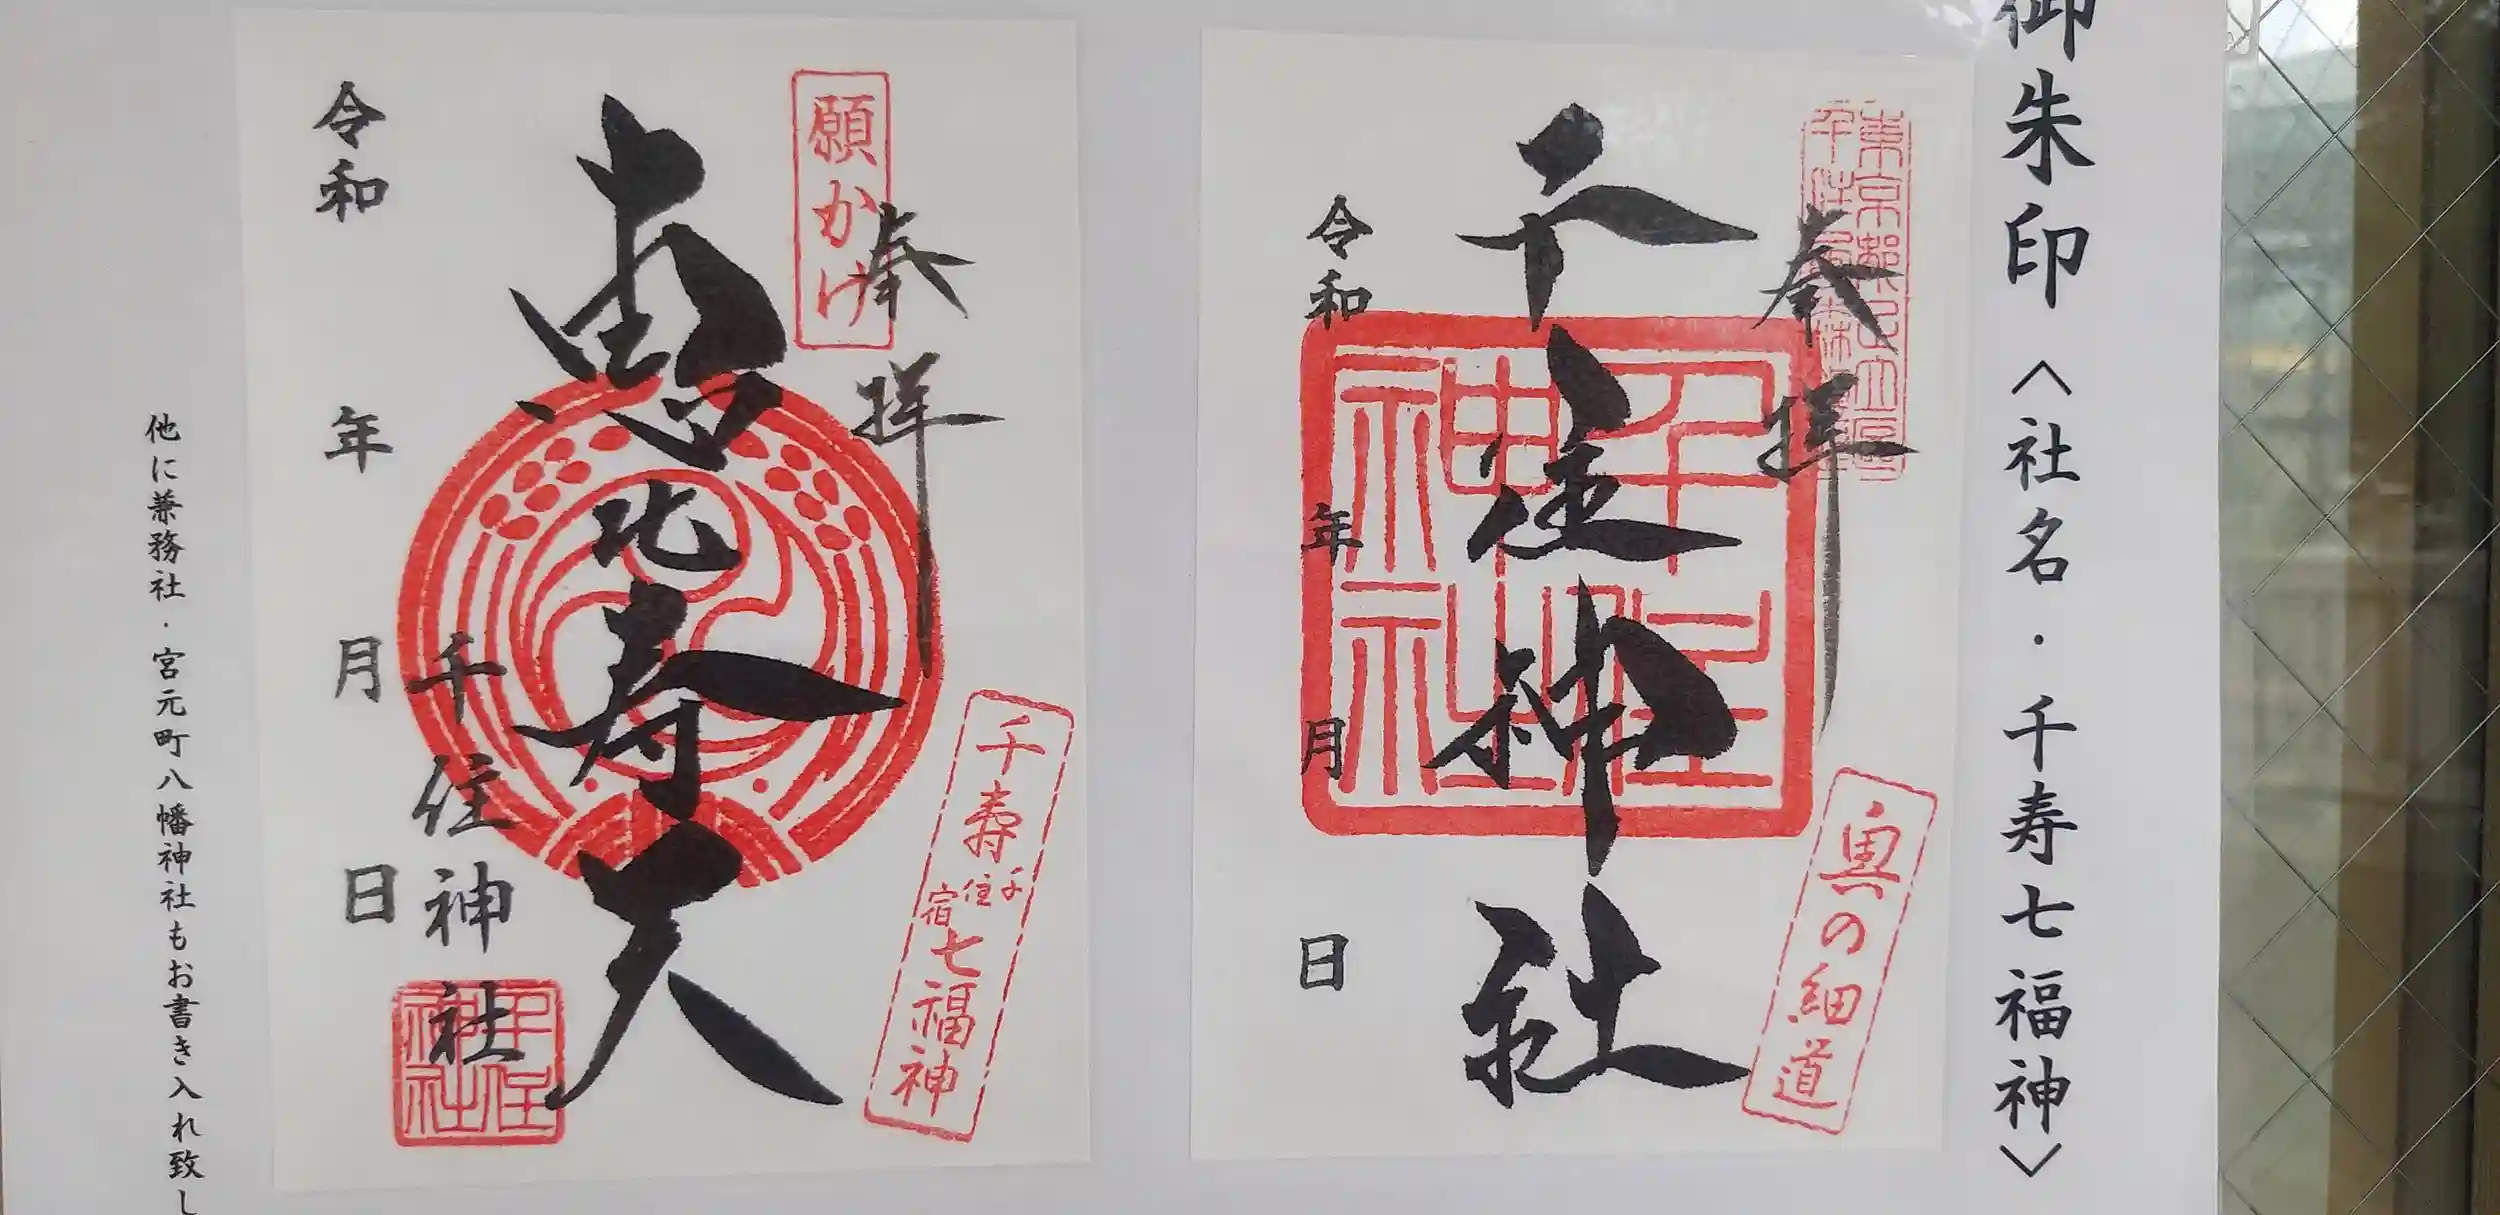 御朱印〈社名・千寿七福神〉
奉拝
千住神社
令和 年 月 日
千住神社
奥の細道
願かけ
奉拝
恵比寿天
千寿千住宿七福神
千住神社
千住神社
令和 年 月 日
他に兼務社・宮元町八幡神社もお書き入れ致し